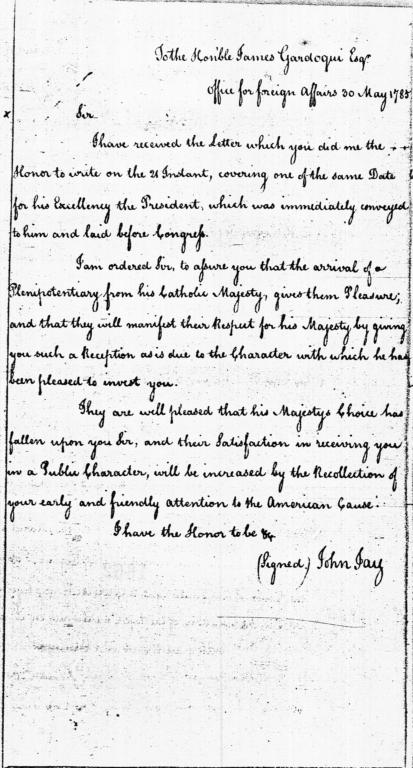 To the Honble James Gardoqui Esqr
Office for foreign Affairs 30 May 1785
x
Sir.
I have received the Letter which you did me the
Honor to write on the 21 Instant, covering one of the same Date
for his Excellency the President, which was immediately conveyed
to him and laid before Congress.
I am ordered Sir, to assure you that the arrival of a
Plenipotentiary from his Catholic Majesty, gives them Pleasure;
and that they will manifest their Respect for his Majesty by giving
you such a Reception as is due to the Character with which he has
been pleased to invest you.
They are well pleased that his Majestys Choice has
fallen upon you Sir, and their Satisfaction in receiving you
in a Public Character, will be increased by the Recollection of
your early and friendly attention to the American Cause.
I have the Honor to be &c
(Signed) John Jay